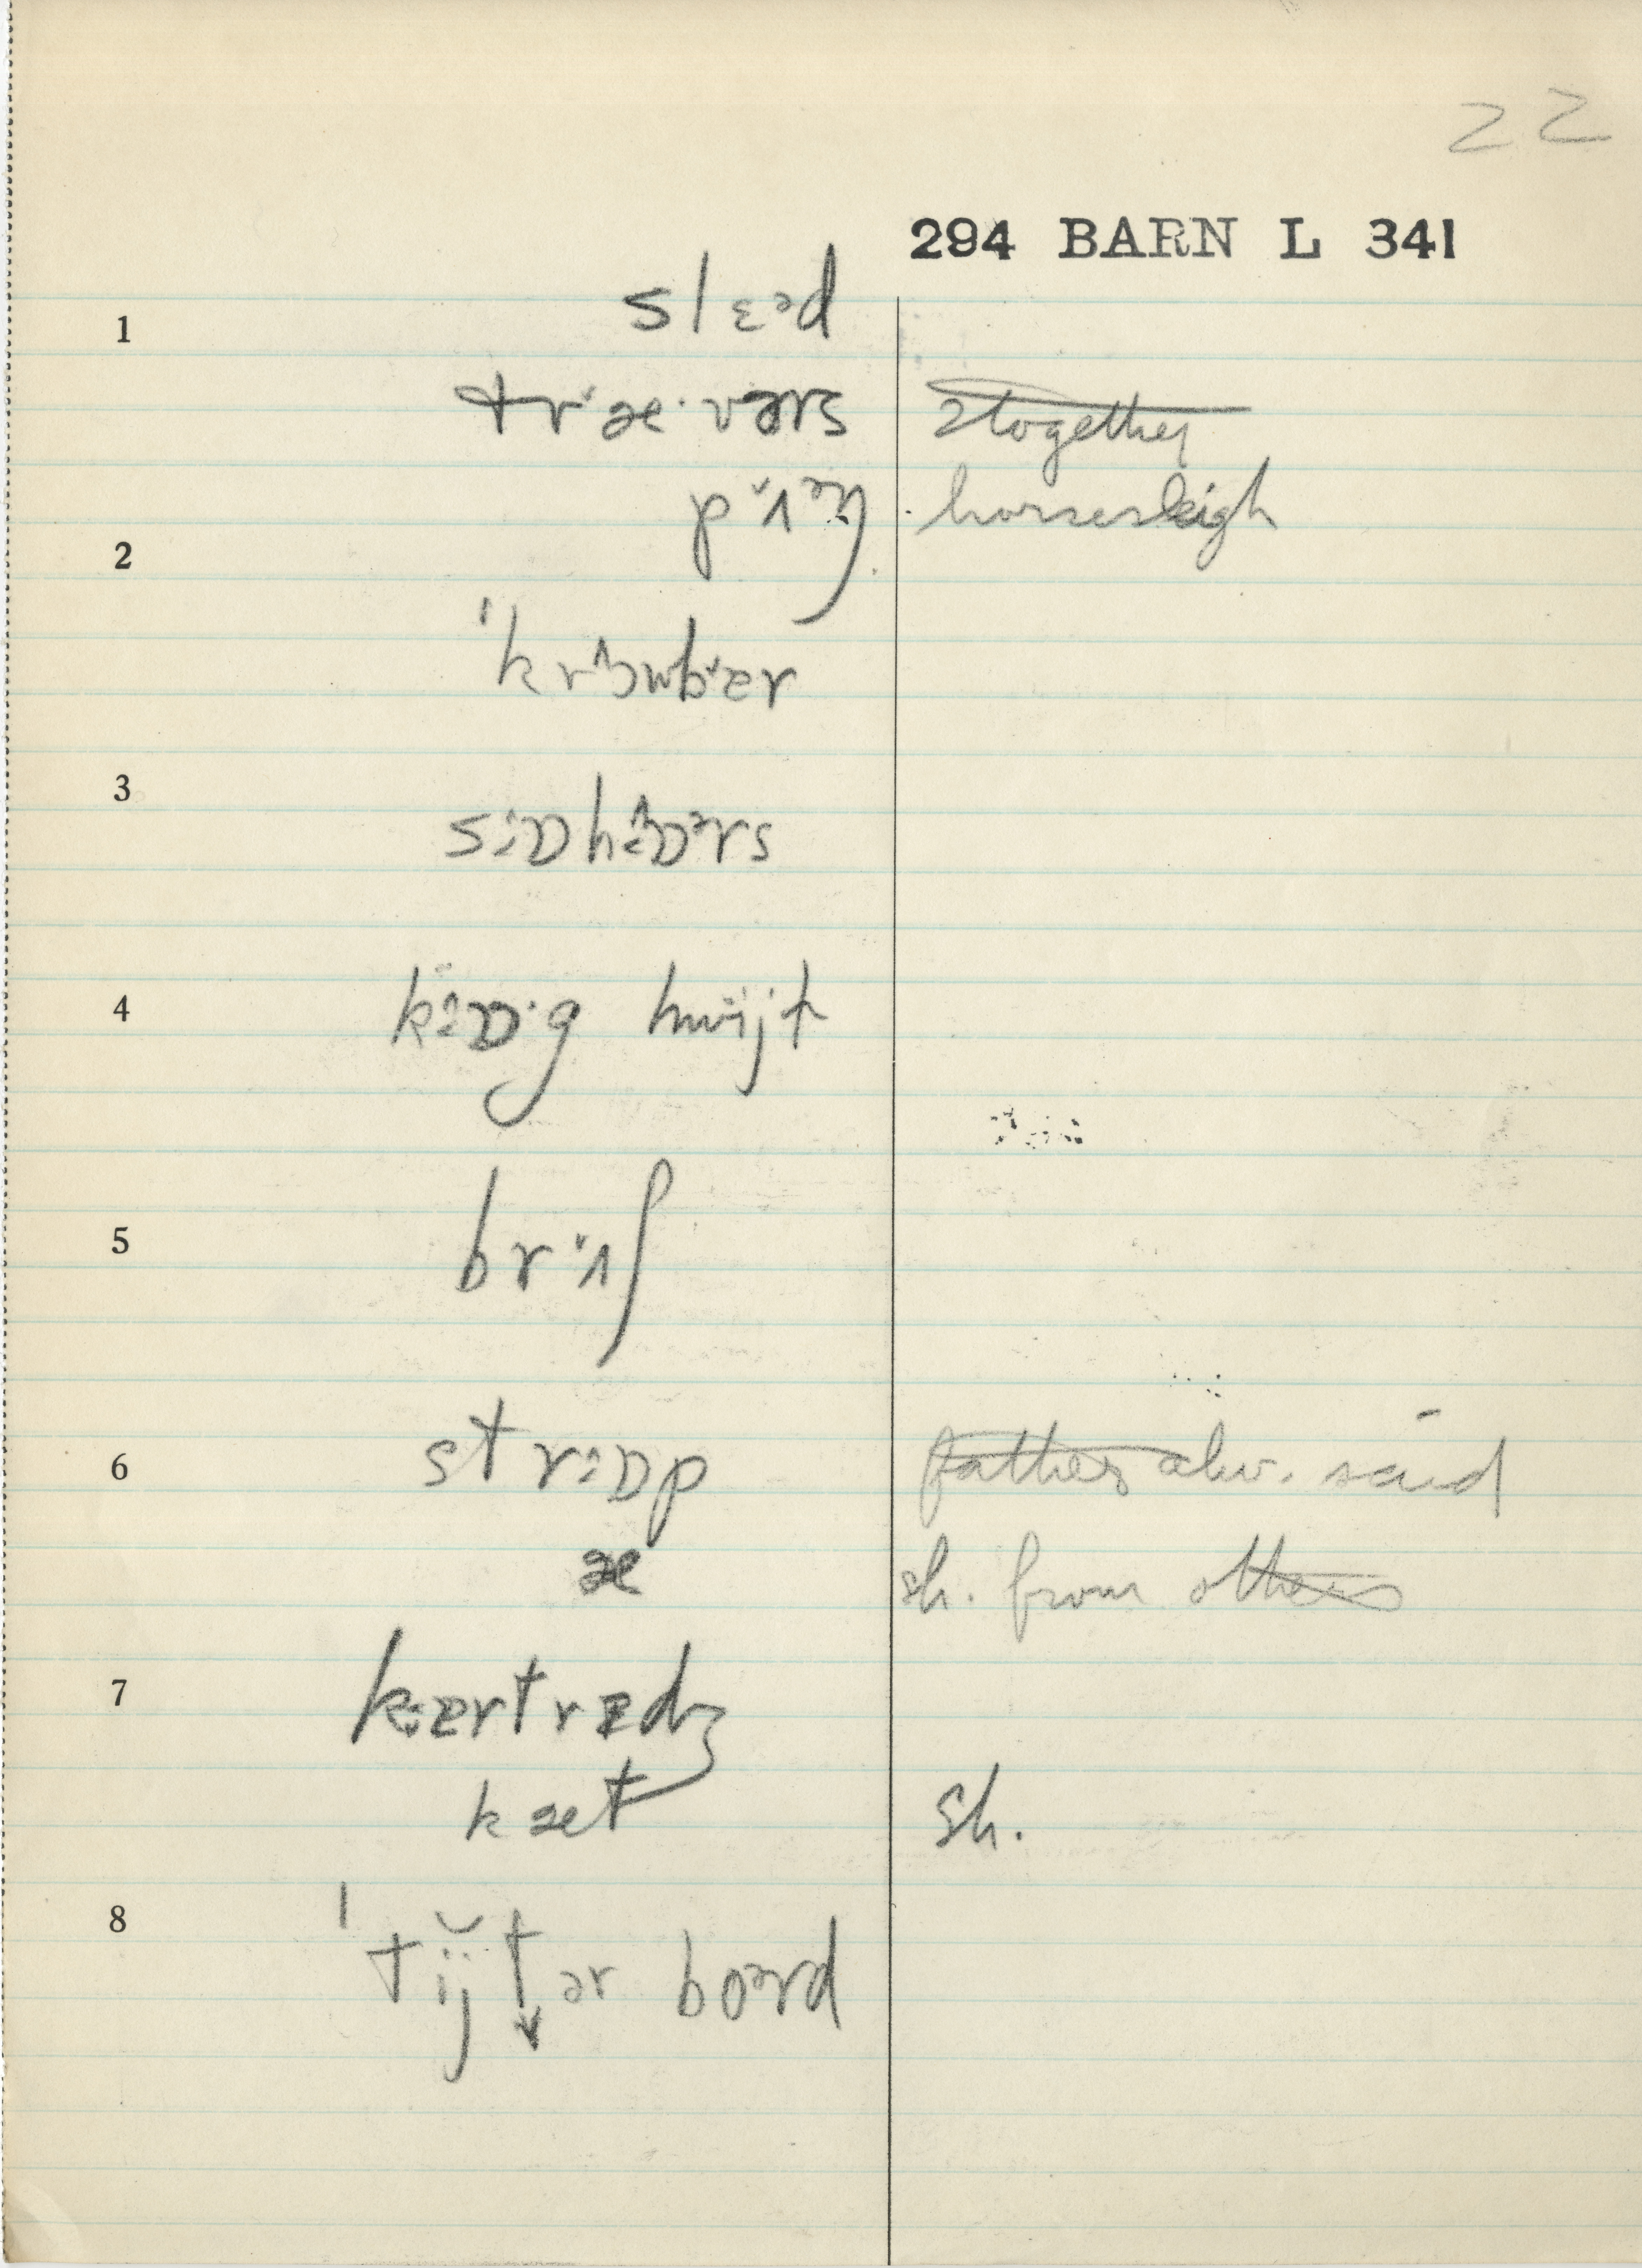 22
294 BARN L 341
1 slɛəd
træ·vərs 2 together
pʌəŋ horsesleigh
2
ˈkrɔwbær
3 sɒhɒərs
4 kɒ·ig hwijt
5 brʌʃ
6 strɒp father alw. said
æ sh. from others
7 kærtrɪdʒ
kæt sh.
8 ˈtijtər boərd